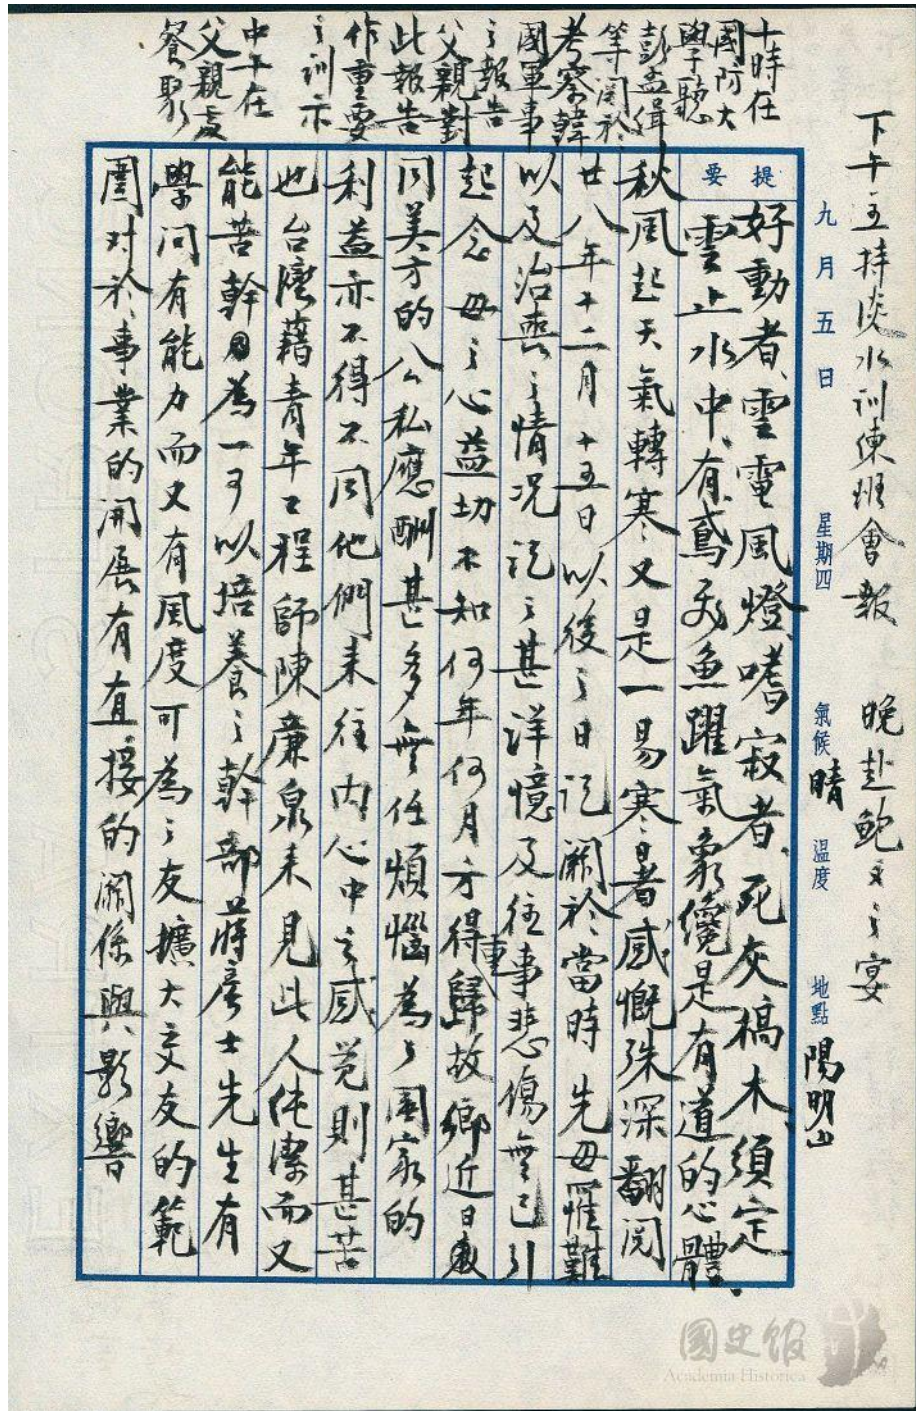 下午主持淡水訓練班會報 晚赴鮑文之宴
九月五日 星期四 氣候 晴 溫度 地點 陽明山
提要
好動者、雲電風燈、嗜寂者、死灰槁木、須定
雲止水中、有鳶飛魚躍氣象、纔是有道的心體。
秋風起天氣轉寒、又是一易寒暑感慨殊深翻閱
廿八年十二月十五日以後之日記關於當時先母罹難
以及治喪之情況記之甚詳憶及往事悲傷無已引
起念母之心益切不知何年何月方得重歸故鄉近日來
同美方的公私應酬甚多無任煩惱為了國家的
利益亦不得不同他們來往內心中之感覺則甚苦
也台灣藉青年工程師陳廉泉來見此人純潔而又
能苦幹因為一可以培養之幹部蔣彥士先生有
學問有能力而又有風度可為之友擴大交友的範
圍对於事業的開展有直接的關係與影響
十時在
國防大
學聽
彭孟緝
等關於
考察韓
國軍事
之報告
父親對
此報告
作重要
之訓示
中午在
父親處
餐聚
國史館
Academia Historica